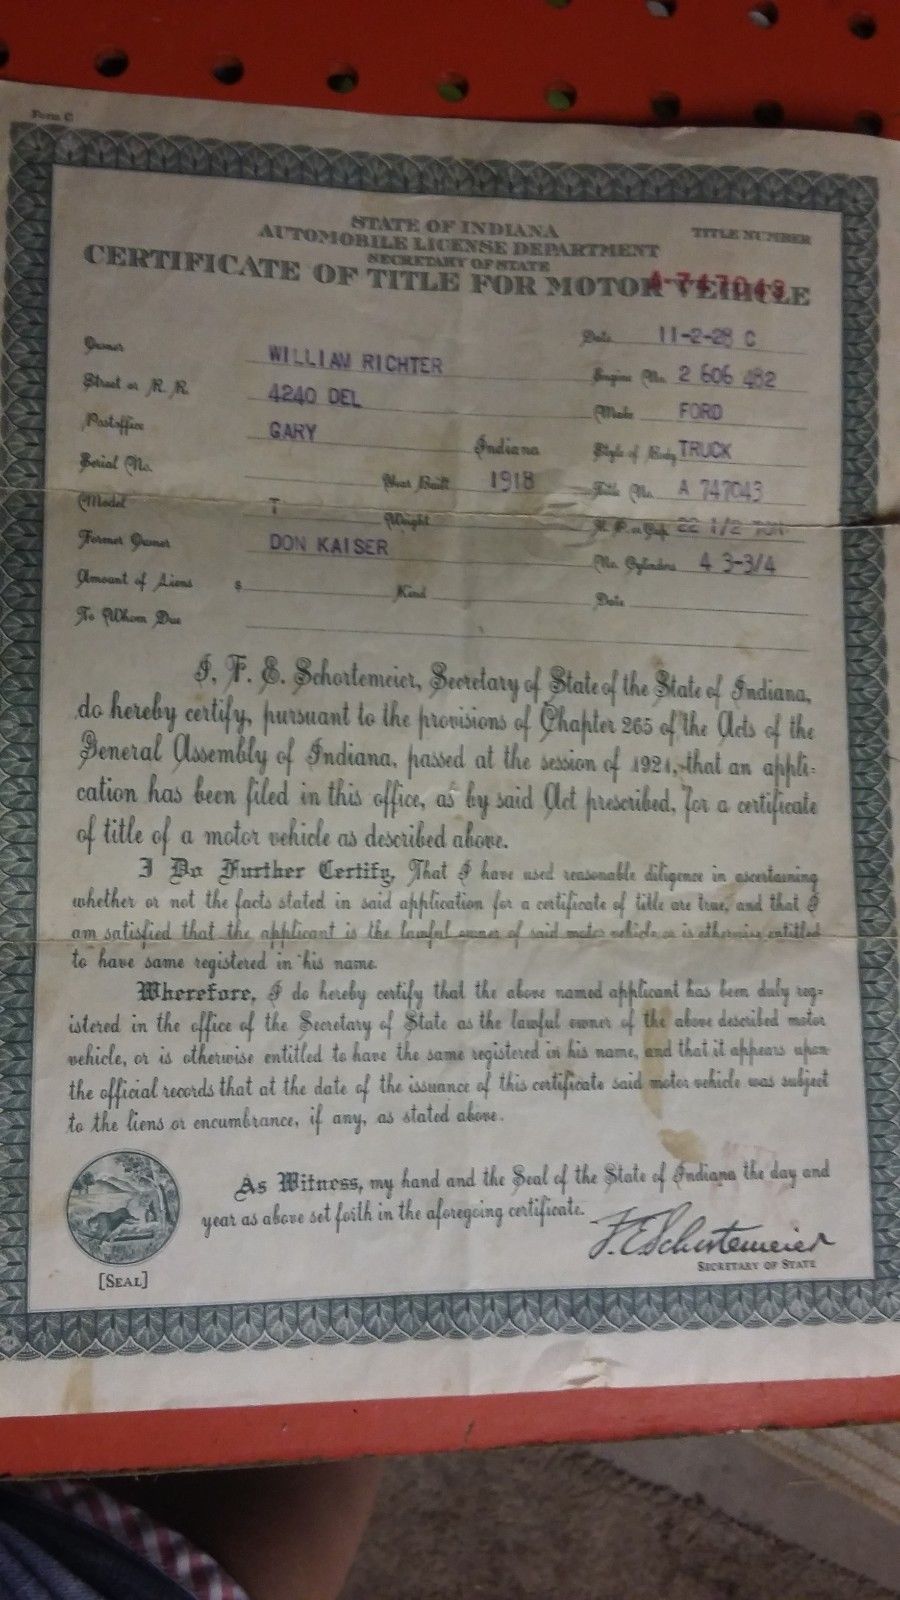 Form C
STATE OF INDIANA
AUTOMOBILE LICENSE DEPARTMENT
TITLE NUMBER
SECRETARY OF STATE
CERTIFICATE OF TITLE FOR MOTOR VEHICLE
A-747043
Owner WILLIAM RICHTER Date 11-2-28 C
Street or R. R. 4240 DEL Engine No. 2 606 482
Postoffice GARY Indiana Make FORD
Serial No. Year Built 1918 Style of Body TRUCK
Model T Weight Title No. A 747043
Former Owner DON KAISER H. P. or Cap. 22 1/2 TON
Amount of Liens $ Kind No. Cylinders 4 3-3/4
To Whom Due Date
I, F. E. Schortemeier, Secretary of State of the State of Indiana,
do hereby certify, pursuant to the provisions of Chapter 265 of the Acts of the
General Assembly of Indiana, passed at the session of 1921, that an appli-
cation has been filed in this office, as by said Act prescribed, for a certificate
of title of a motor vehicle as described above.
I Do Further Certify, That I have used reasonable diligence in ascertaining
whether or not the facts stated in said application for a certificate of title are true, and that I
am satisfied that the applicant is the lawful owner of said motor vehicle or is otherwise entitled
to have same registered in his name.
Wherefore, I do hereby certify that the above named applicant has been duly reg-
istered in the office of the Secretary of State as the lawful owner of the above described motor
vehicle, or is otherwise entitled to have the same registered in his name, and that it appears upon
the official records that at the date of the issuance of this certificate said motor vehicle was subject
to the liens or encumbrance, if any, as stated above.
As Witness, my hand and the Seal of the State of Indiana the day and
year as above set forth in the aforegoing certificate.
F. E. Schortemeier
SECRETARY OF STATE
[SEAL]